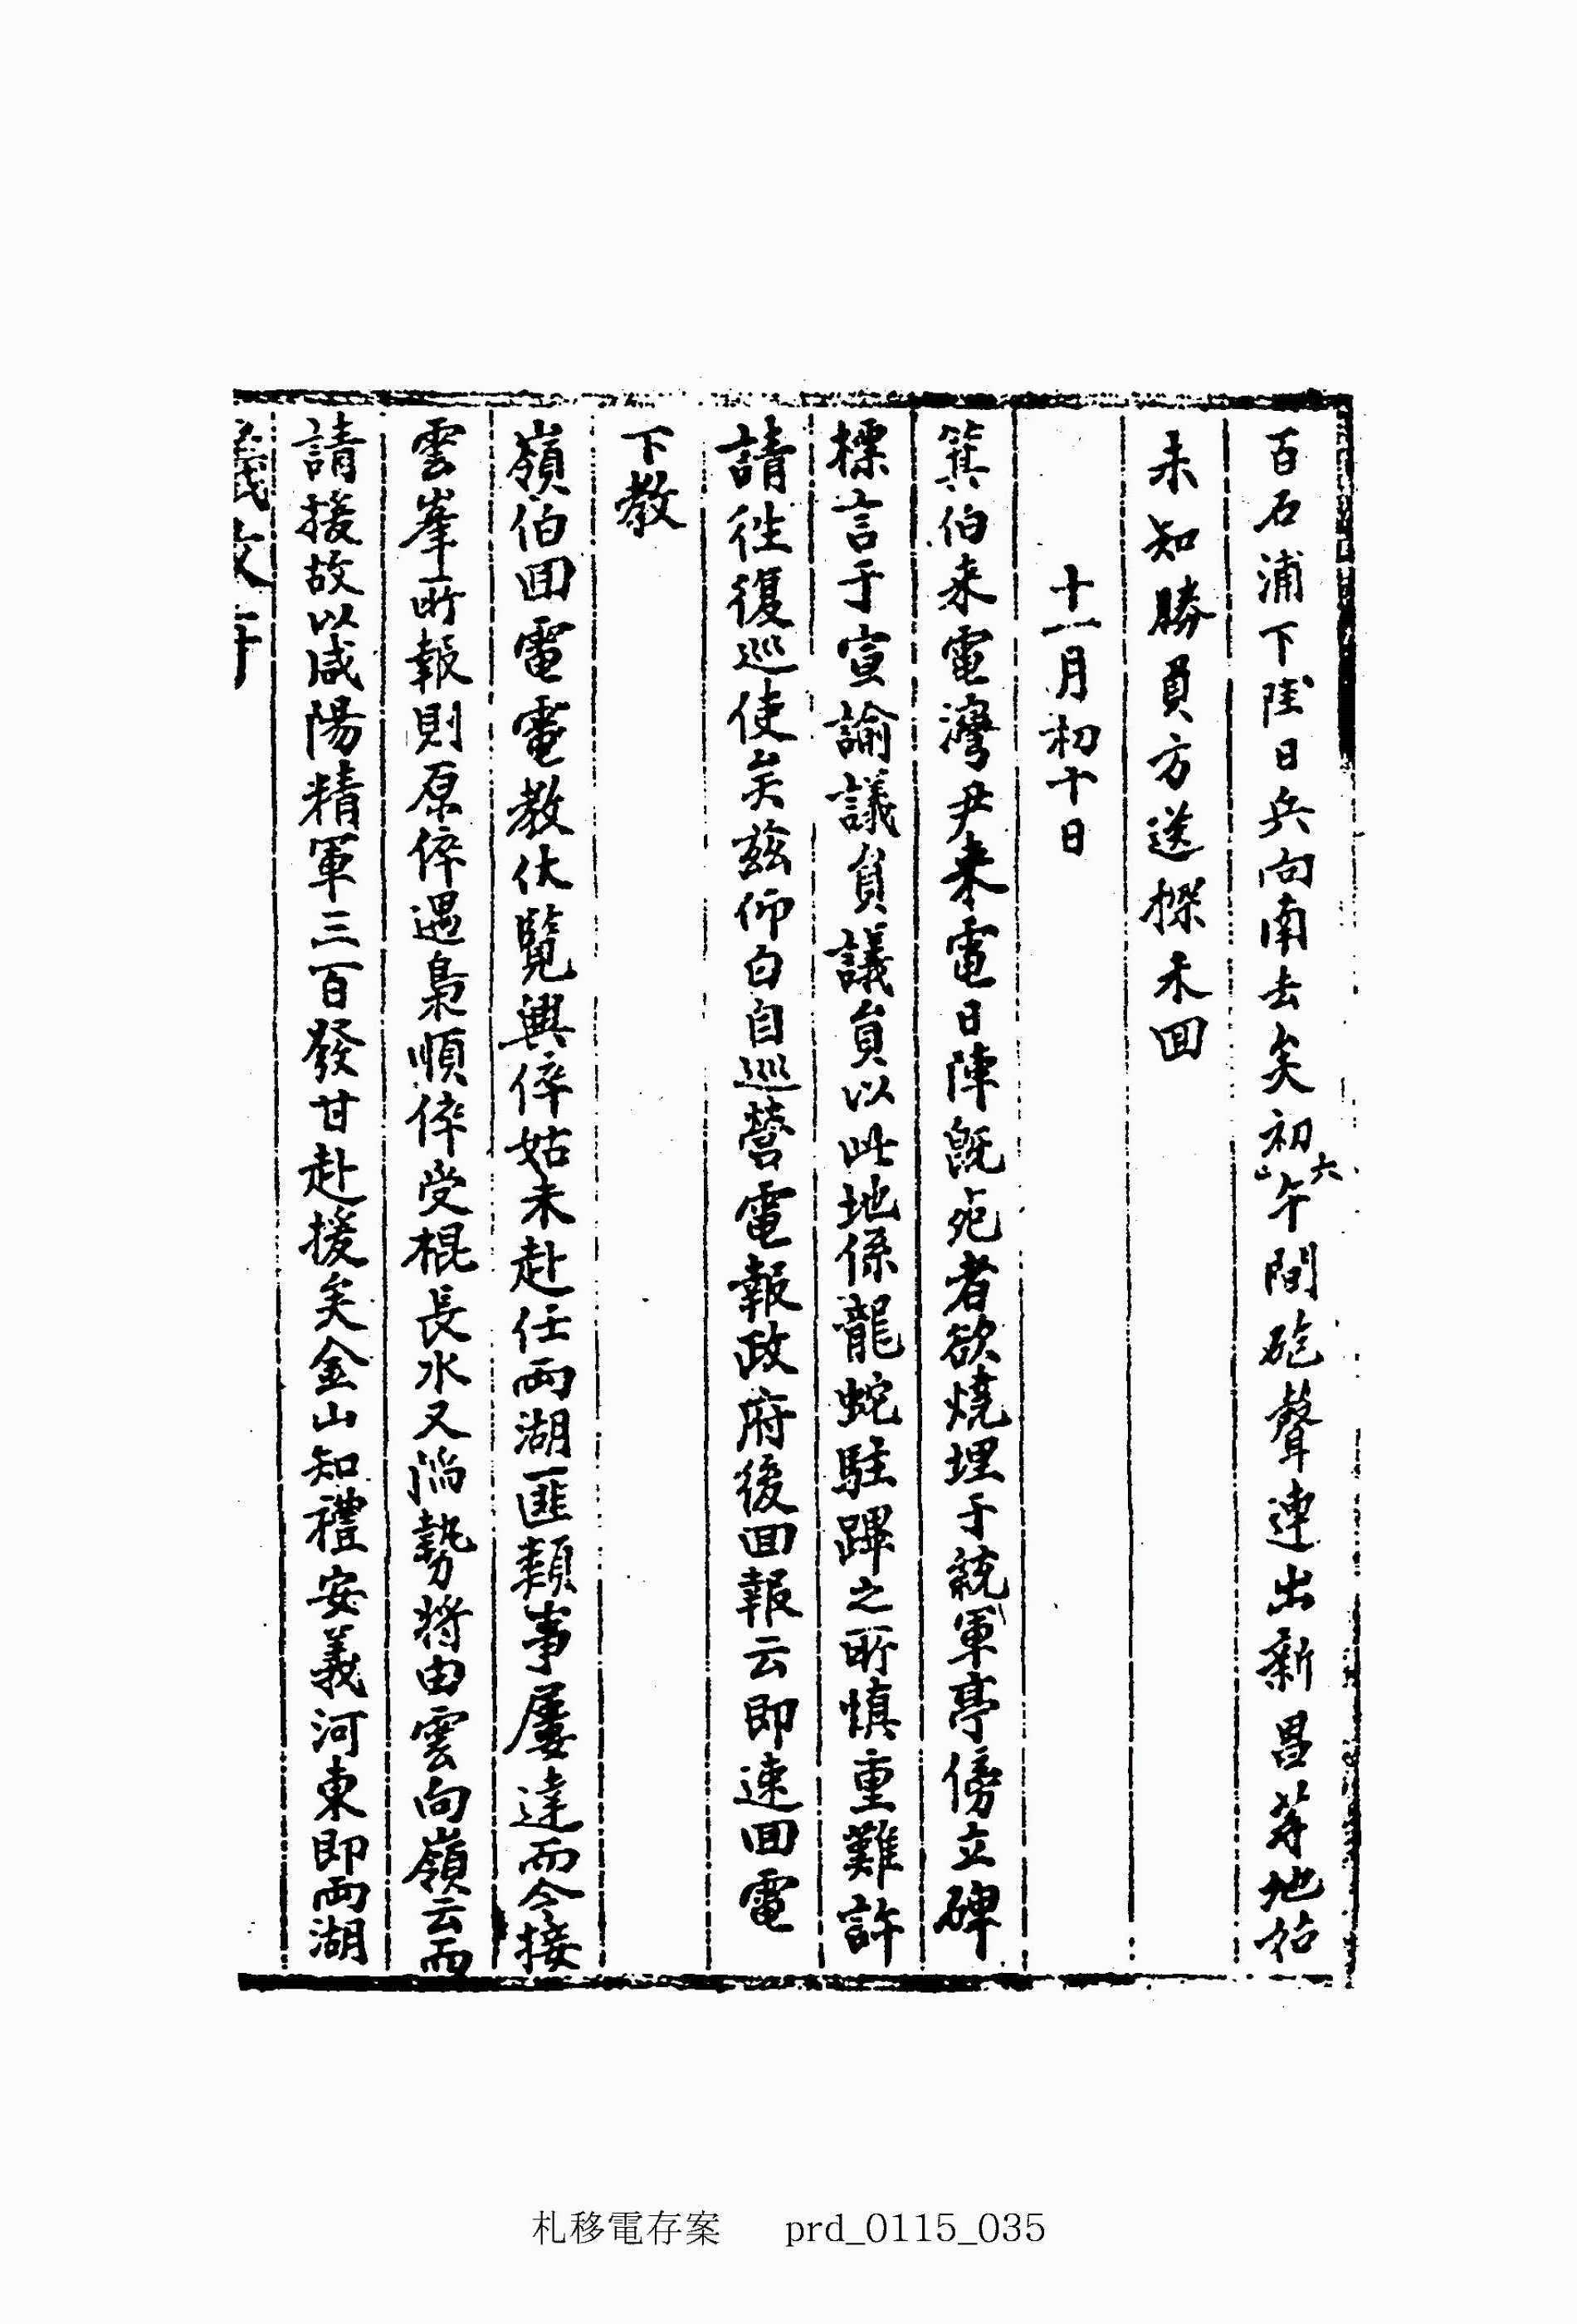 百石浦下陸日兵向南去矣初六午間砲聲連出新昌等地姑
未知勝負方送探未回
十一月初十日
箕伯來電灣尹來電日陣旣死者欲燒埋于統軍亭傍立碑
標言于宣諭議員議員以此地係龍蛇駐蹕之所愼重難許
請徃復巡使矣玆仰白自巡營電報政府後回報云卽速回電
下敎
嶺伯回電電敎伏覽興倅姑未赴任兩湖匪類事屢達而今接
雲峯所報則原倅遇梟順倅受棍長水又陷勢將由雲向嶺云而
請援故以咸陽精軍三百發甘赴援矣金山知禮安義河東卽兩湖